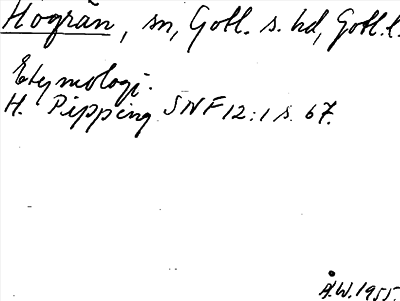 Hogrän, sn, Gotl. s. hd, Gotl. l.
Etymologi.
H. Pipping SNF 12:1 s. 67.
Å.W. 1955.